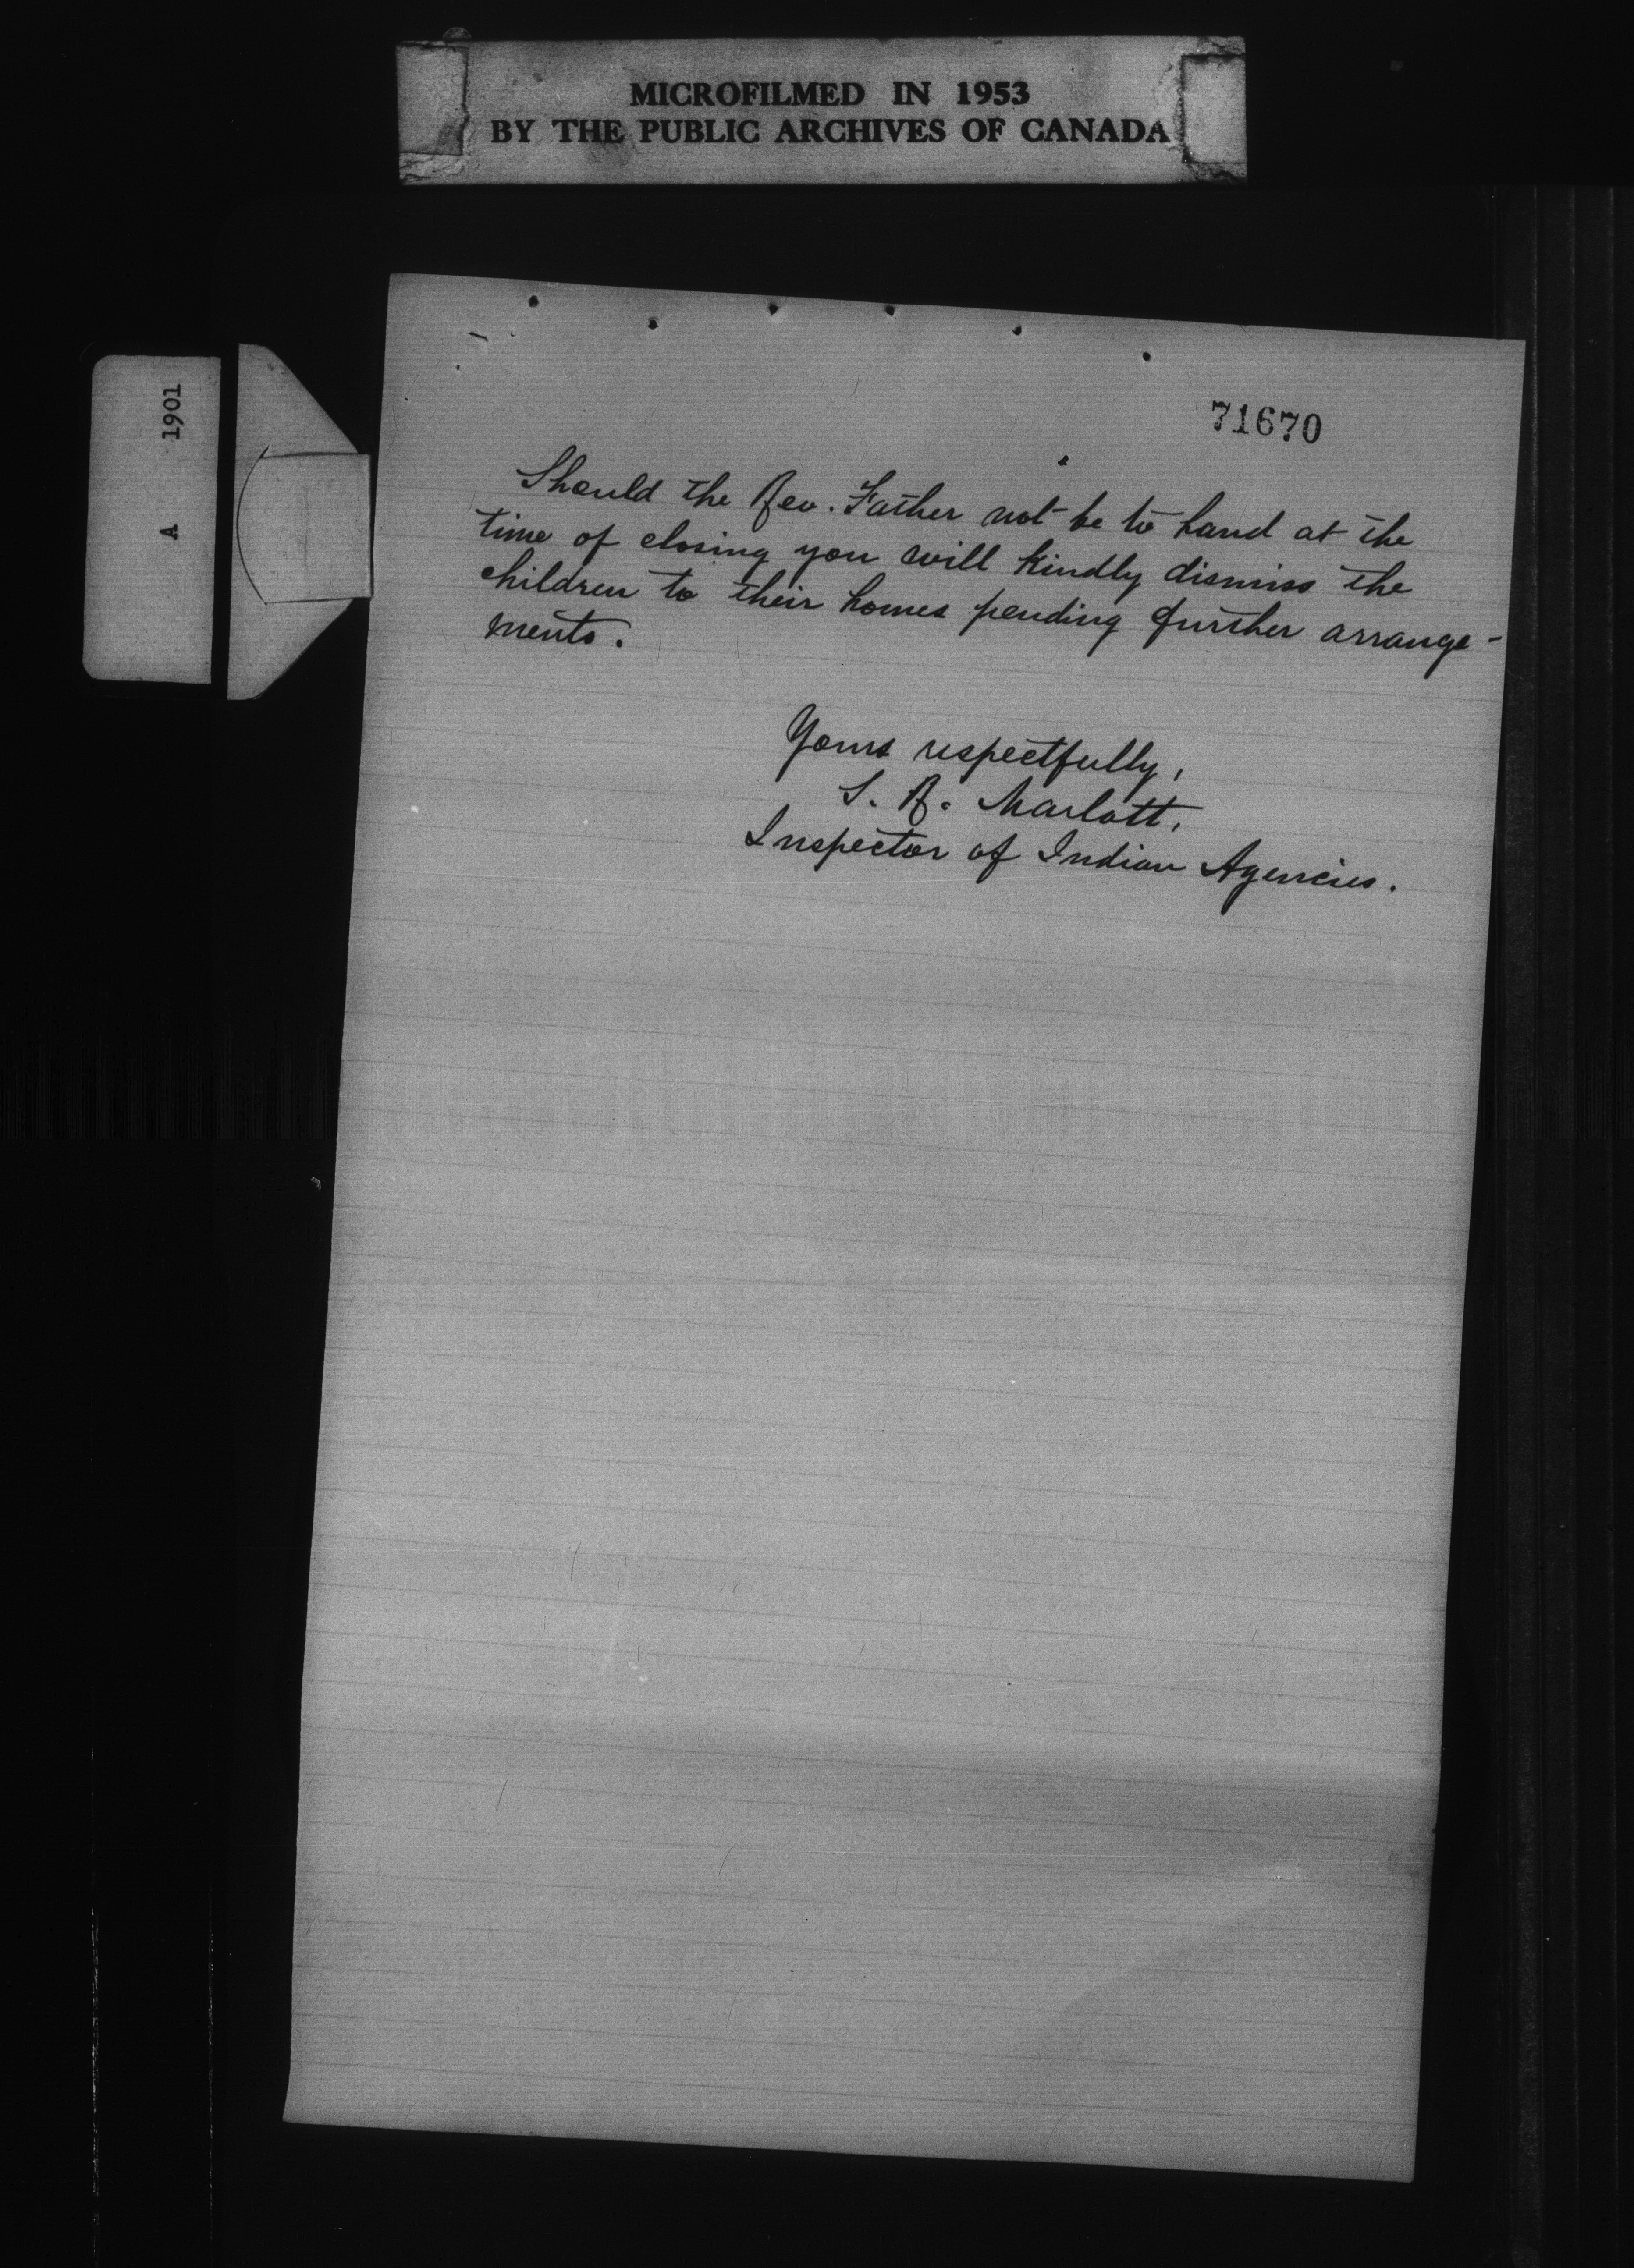 MICROFILMED IN 1953
BY THE PUBLIC ARCHIVES OF CANADA
A 1901
71670
Should the Rev. Father not be to hand at the
time of closing you will kindly dismiss the
children to their homes pending further arrange-
ments.
Yours respectfully,
S. R. Marlatt,
Inspector of Indian Agencies.